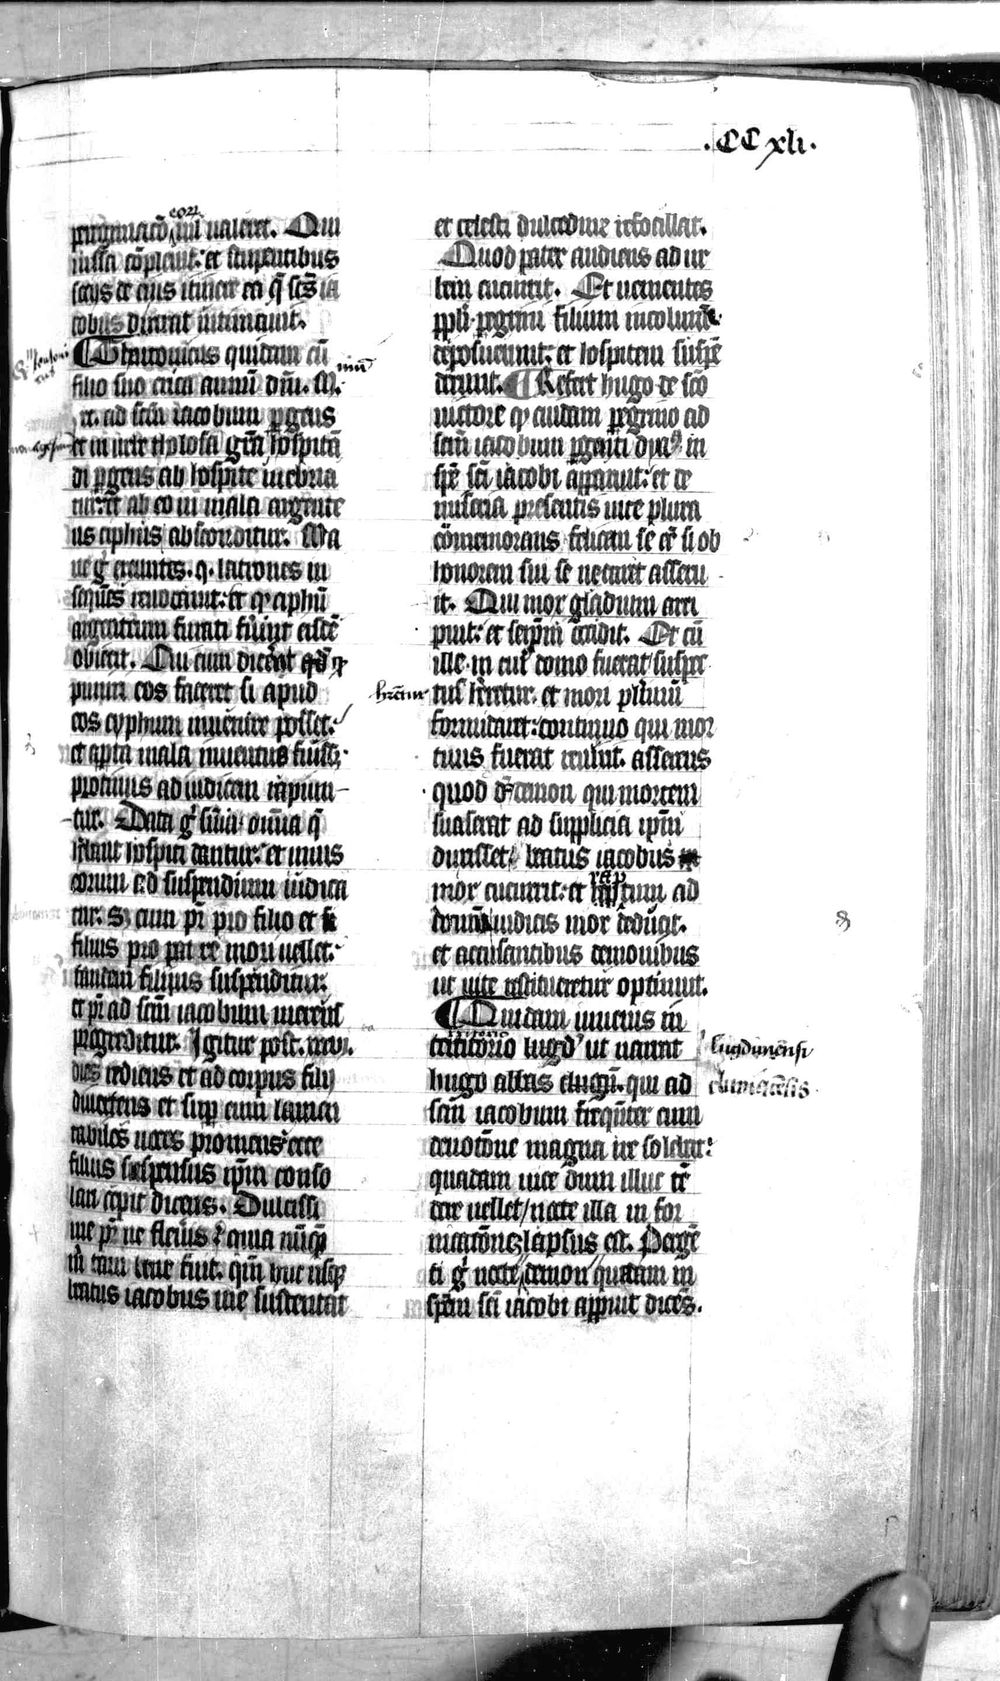 .CCxli.
eoꝝ
ꝑegrinacõ nil ualeret. Qui
iussa cõpleuit: et stupentibus
socijs de eius itinere ea q̃ scũs ia
cobus dixerat intimauit.
Theutonicus quidam cũ
filio suo circa annũ dñi. M.
xx. ad scm̃ iacobum ꝑgens
et in urbe tholosa gr̃a hospitã
di ꝑgens ab hospite inebria
tur: et ab eo in mala argente
us ciphus absconditur. Ma
ne g̊ exeuntes. q. latrones in
seqũes reuocauit: et ꝙ ciphũ
argenteum furati fuissent eisdẽ
obiecit. Qui cum dicerent
puniri eos faceret si apud
eos cyphum inuenire posset:
et apta mala inuentus fuisset;
protinus ad iudicem rapiun-
-tur. Data g̊ sñia omnia q̃
hẽbant hospiti dantur: et unus
eorum ad suspendium iudica
tur. Sʒ cum pr̃ pro filio et
filius pro patre mori uellet:
tandem filius suspenditur:
et pr̃ ad scm̃ iacobum merens
progreditur. Igitur post. xxxvj.
dies rediens et ad corpus filij
diuertens et suꝑ eum lamen
tabiles uoces promens: ecce
filius suspensus ipm̃ conso
lari cepit dicens. Dulcissi
me pr̃ ne fleueris
beatus iacobus me sustentat
et celesti dulcedine refocillat.
Quod pater audiens ad ur
bem cucurrit. Et uenientes
ppli. ꝑegrini filium incolumẽ
deposuerunt: et hospitem suspẽ
derunt. Refert hugo de scõ
uictore ꝙ cuidam ꝑegrino ad
scm̃ iacobum ꝑgenti dyabolus in
spẽ sci iacobi apparuit: et de
miseria presentis uite plura
cõmemorans felicem se eẽ si ob
honorem sui se necaret asseru
it. Qui mox gladium arri
puit: et seipm̃ occidit. Et cũ
ille in cuius domo fuerat suspec
tus hr̃etur. et mori plurimũ
formidaret: continuo qui mor
tuus fuerat reuixit. asserens
quod demon qui mortem
suaserat ad supplicia ipm̃
duxisset. beatus iacobus
mox cucurrit: et raptum ad
domũ iudicis mox deduxit.
et accusantibus demonibus
ut uite restitueretur optinuit.
Quidam iuuenis in
territorio lugd' ut narrat
hugo abbas clugñ. qui ad
scm̃ iacobum freqũter cum
deuotõne magna ire solebat:
quadam uice dum illuc tẽ
dere uellet / nocte illa in for
nicatõnez lapsus est. Pergẽ
ti g̊ nocte demon quadam in
spẽm sci iacobi apparuit dicẽs.
hr̃etur
lugdunẽnsi
cluniacẽsis